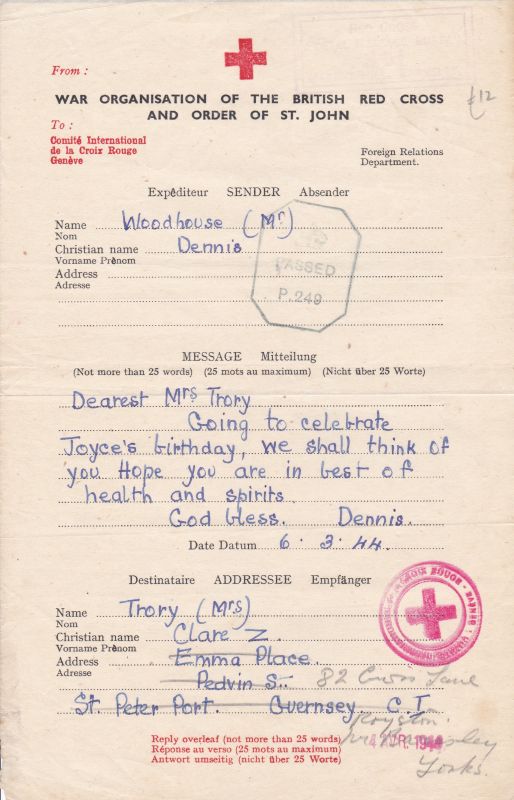 From :
WAR ORGANISATION OF THE BRITISH RED CROSS
AND ORDER OF ST. JOHN
£12
To :
Comité International
de la Croix Rouge
Genève
Foreign Relations
Department.
Expéditeur SENDER Absender
Name Woodhouse (Mr)
Nom
Christian name Dennis
Vorname Prènom
Address
Adresse
PASSED
P.249
MESSAGE Mitteilung
(Not more than 25 words) (25 mots au maximum) (Nicht über 25 Worte)
Dearest Mrs Trory
Going to celebrate
Joyce's birthday, we shall think of
you Hope you are in best of
health and spirits
God bless. Dennis.
Date Datum 6. 3. 44.
Destinataire ADDRESSEE Empfänger
Name Trory (Mrs)
Nom
Christian name Clare Z.
Vorname Prènom
Address Emma Place
Adresse Pedvin S..
82 Cross Lane
St. Peter Port. Guernsey C.I.
Royston.
nr. Barnsley
Yorks.
CROIX ROUGE - GENÈVE
Reply overleaf (not more than 25 words)
Réponse au verso (25 mots au maximum)
Antwort umseitig (nicht über 25 Worte)